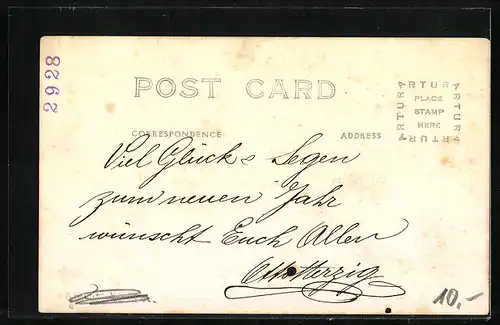 2928
POST CARD
ARTURA
ARTURA
PLACE
STAMP
HERE
ARTURA
ARTURA
CORRESPONDENCE
ADDRESS
Viel Glück & Segen
zum neuen Jahr
wünscht Euch Allen
Otto Herzig
10.-